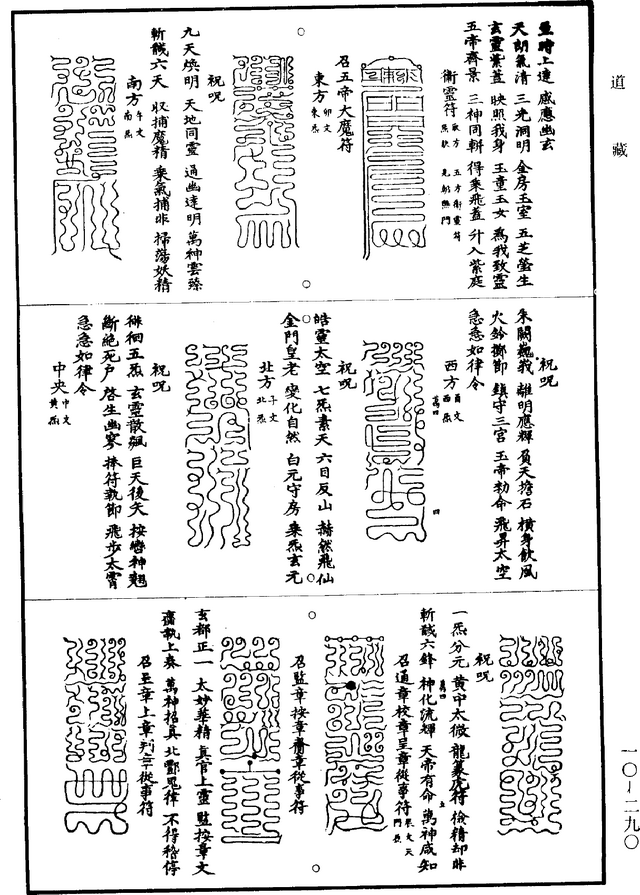 道藏
並時上達 感應幽玄
天朗氣清 三光洞明 金房玉室 五芝螢生
玄靈紫蓋 映照我身 玉童玉女 為我致靈
五帝齊景 三神同軿 得乘飛蓋 升入紫庭
衛靈符
召五帝大魔符
東方 卯文
祝呪
九天煥明 天地同靈 過幽達明 萬神雲臻
斬馘六天 收捕魔精 乘氣捕非 掃蕩妖精
南方 午文 南炁
祝呪
朱闕巍峩 離明應輝 負天擔石 橫身飲風
火鈴擲節 鎮守三宮 玉帝勑命 飛昇太空
急急如律令
西方 酉文 西炁
萬四
四
祝呪
皓靈太空 七炁素天 六目反山 赫然飛仙
金門皇老 變化自然 白元守房 乘炁玄元
北方 子文 北炁
祝呪
徘徊五炁 玄靈散飆 巨天後矢 按轡神翹
斷絶死戶 啓生幽寥 捧符執節 飛步太霄
急急如律令
中央 中文 黃炁
祝呪
一炁分元 黃中太微 龍篆虎符 儉精却非
斬馘六鋒 神化流輝 天帝有命 萬神咸知
萬四
五
召通章校章呈章從事符
召監章按章齎章從事符
玄都正一 太妙華精 真官上靈 監按章文
齎執上奏 萬神招真 北酆鬼律 不得稽停
召呈章上章判章從事符
一〇-二九〇